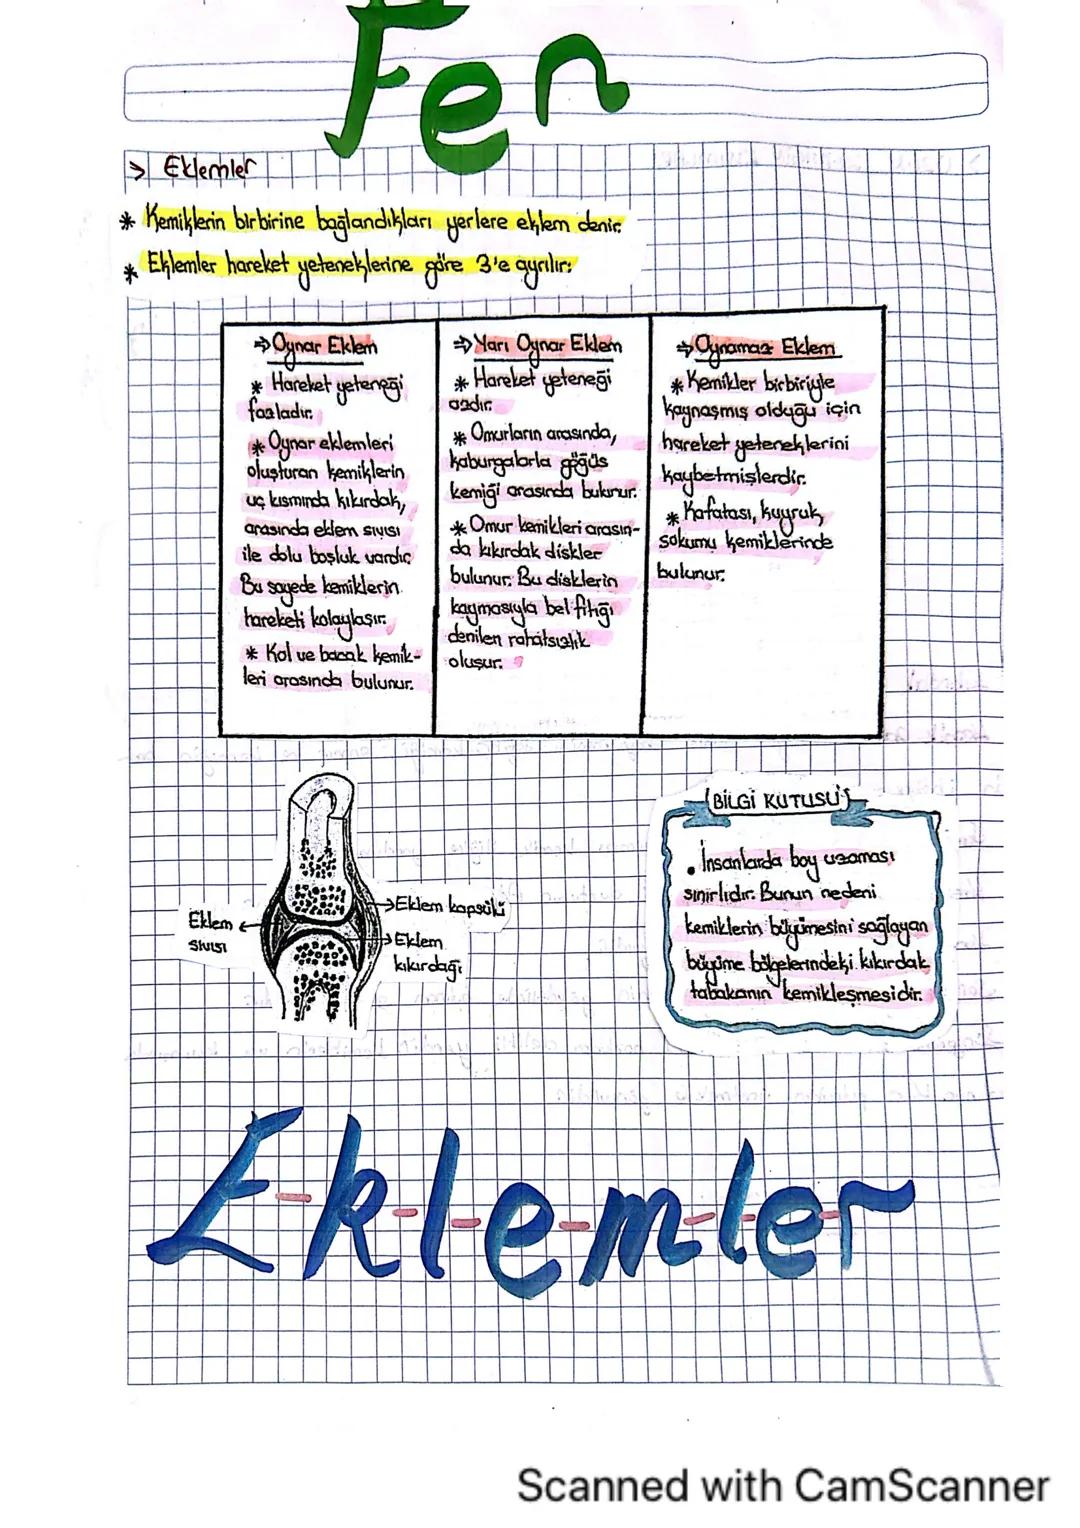 Fen
→ Eklemler
* Kemiklerin birbirine bağlandıkları yerlere eklem denir.
* Eklemler hareket yeteneklerine göre 3'e ayrılır:
⇒ Oynar Eklem
* Hareket yeteneği
fazladır.
* Oynar eklemleri
oluşturan kemiklerin
uç kısmında kıkırdak,
arasında eklem sıvısı
ile dolu boşluk vardır.
Bu sayede kemiklerin
hareketi kolaylaşır.
* Kol ve bacak kemik-
leri arasında bulunur.
⇒ Yarı Oynar Eklem
* Hareket yeteneği
azdır.
* Omurların arasında,
kaburgalarla göğüs
kemiği arasında bulunur.
* Omur kemikleri arasın-
da kıkırdak diskler
bulunur. Bu disklerin
kaymasıyla bel fıtığı
denilen rahatsızlık
oluşur.
⇒ Oynamaz Eklem
* Kemikler birbiriyle
kaynaşmış olduğu için
hareket yeteneklerini
kaybetmişlerdir.
* Kafatası, kuyruk,
sokumu kemiklerinde
bulunur.
Eklem
sıvısı
Eklem kapsülü
Eklem
kıkırdağı
BİLGİ KUTUSU
• İnsanlarda boy uzaması
sınırlıdır. Bunun nedeni
kemiklerin büyümesini sağlayan
büyüme bölgelerindeki kıkırdak
tabakanın kemikleşmesidir.
E-k-l-e-m-l-e-r
Scanned with CamScanner